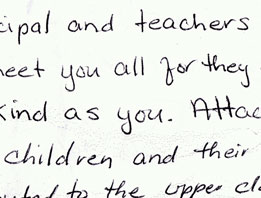 cipal and teachers
meet you all for they
kind as you. Attac
children and their
to the upper cl